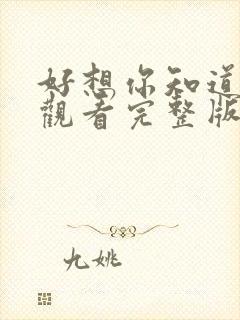 好想你知道
觀看完整版
九姚